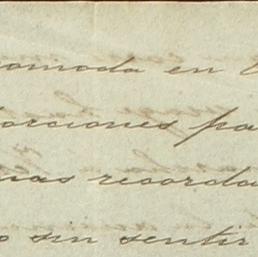 comoda en l
orciones pa
nas recorda
o sin sentir